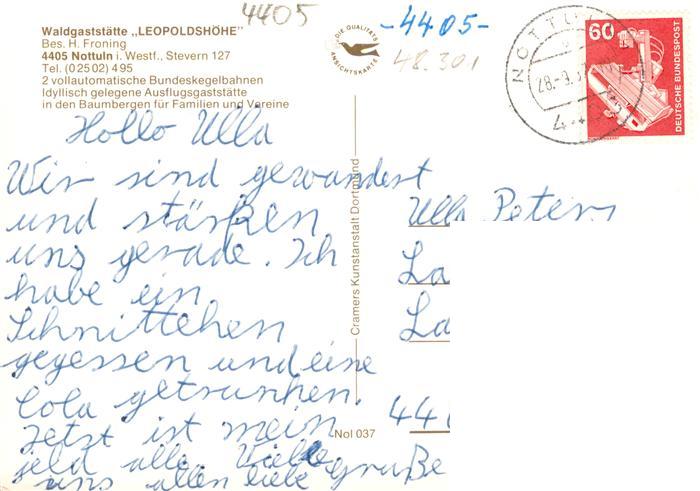 4405
-4405-
48.301
Waldgaststätte „LEOPOLDSHÖHE"
Bes. H. Froning
4405 Nottuln i. Westf., Stevern 127
Tel. (0 25 02) 4 95
2 vollautomatische Bundeskegelbahnen
Idyllisch gelegene Ausflugsgaststätte
in den Baumbergen für Familien und Vereine
DIE QUALITÄTS
ANSICHTSKARTE
NOTTULN
28.-9.8
4
60
DEUTSCHE BUNDESPOST
Hollo Ulla
Wir sind gewandert
und stärken
uns gerade. Ich
habe ein
Schnittchen
gegessen und eine
Cola getrunken.
Jetzt ist mein
jeld alle. Viele
uns allen liebe grüße
Cramers Kunstanstalt Dortmund
Nol 037
Ulla Peters
La
La
44